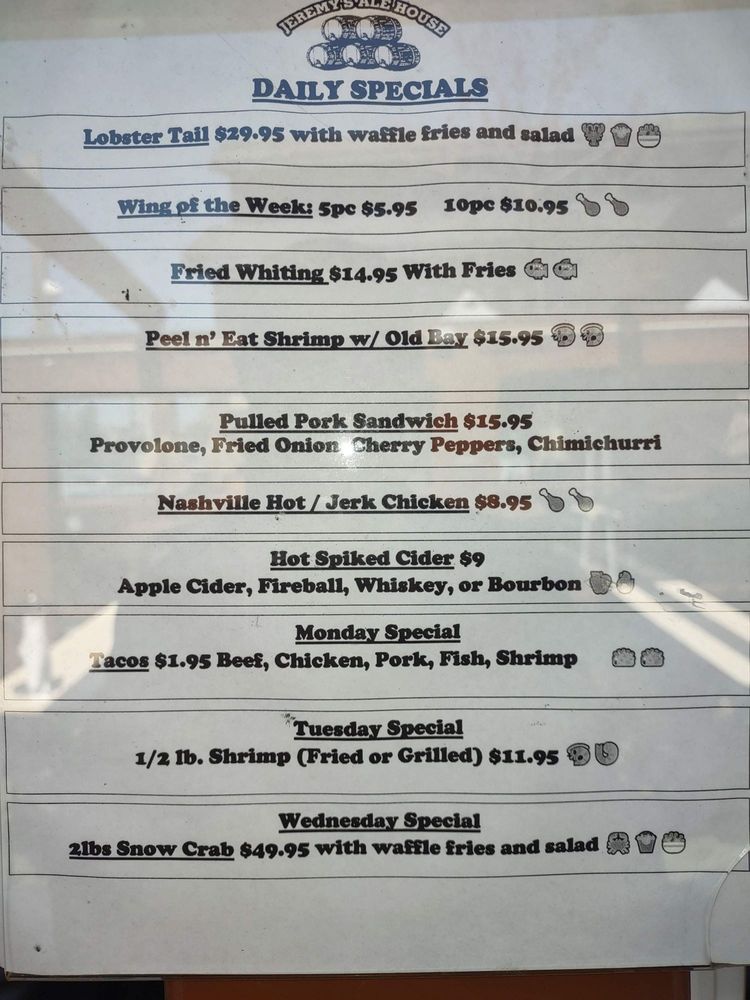 JEREMY'S ALE HOUSE
DAILY SPECIALS
Lobster Tail $29.95 with waffle fries and salad
Wing of the Week: 5pc $5.95 10pc $10.95
Fried Whiting $14.95 With Fries
Peel n' Eat Shrimp w/ Old Bay $15.95
Pulled Pork Sandwich $15.95
Provolone, Fried Onion, Cherry Peppers, Chimichurri
Nashville Hot / Jerk Chicken $8.95
Hot Spiked Cider $9
Apple Cider, Fireball, Whiskey, or Bourbon
Monday Special
Tacos $1.95 Beef, Chicken, Pork, Fish, Shrimp
Tuesday Special
1/2 lb. Shrimp (Fried or Grilled) $11.95
Wednesday Special
2lbs Snow Crab $49.95 with waffle fries and salad